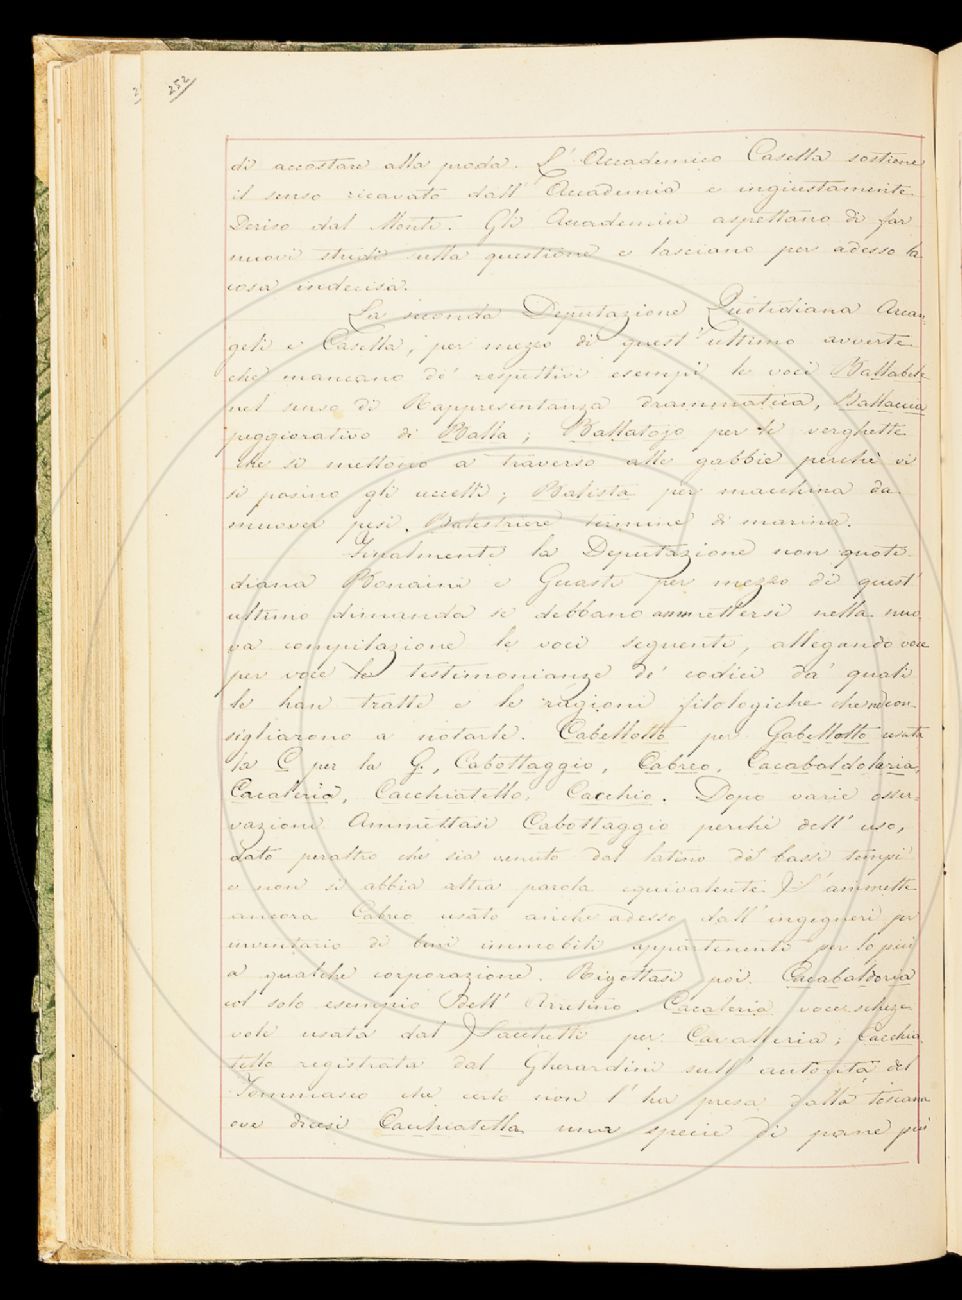 252
di accostare alla proda. L'Accademico Casella sostiene
il senso ricavato dall'Accademia e ingiustamente
deriso dal Monti. Gli Accademici aspettano di far
nuovi studi sulla questione e lasciano per adesso la
cosa indecisa.
La seconda Deputazione Quotidiana Arcan-
geli e Casella, per mezzo di quest'ultimo avverte
che mancano de' respettivi esempi le voci
nel senso di Rappresentanza drammatica, Ballaccia
peggiorativo di Balla; Ballatojo per le verghette
che si mettono a traverso alle gabbie perchè vi
si posino gli uccelli; Balista per macchina da
muover pesi. Balestriere termine di marina.
Finalmente la Deputazione non quoti-
diana Bonaini e Guasti per mezzo di quest'
ultimo dimanda se debbano ammettersi nella nuo
va compilazione le voci seguenti, allegando voce
per voce le testimonianze de' codici da' quali
le han tratte e le ragioni filologiche che con
sigliarono a notarle. Cabellotto per Gabellotto usata
la C per la G., Cabottaggio, Cabreo, Cacabaldoleria,
Cacaleria, Cacchiatello, Cacchio. Dopo varie osser-
vazioni Ammettasi Cabottaggio perchè dell'uso,
dato peraltro che sia venuto dal latino de' bassi tempi
e non si abbia altra parola equivalente. S'ammette
ancora Cabreo usato anche adesso dall'ingegneri per
inventario di beni immobili appartenenti per lo più
a qualche corporazione. Rigettasi poi Cacabaldoria
col solo esempio dell'Aretino. Cacaleria voce scherze-
vole usata dal Sacchetti per Cavalleria; Cacchia
tello registrata dal Gherardini sull'autorità del
Tommaseo che certo non l'ha presa dalla toscana
ove dicesi Cacchiatella una specie di pane più